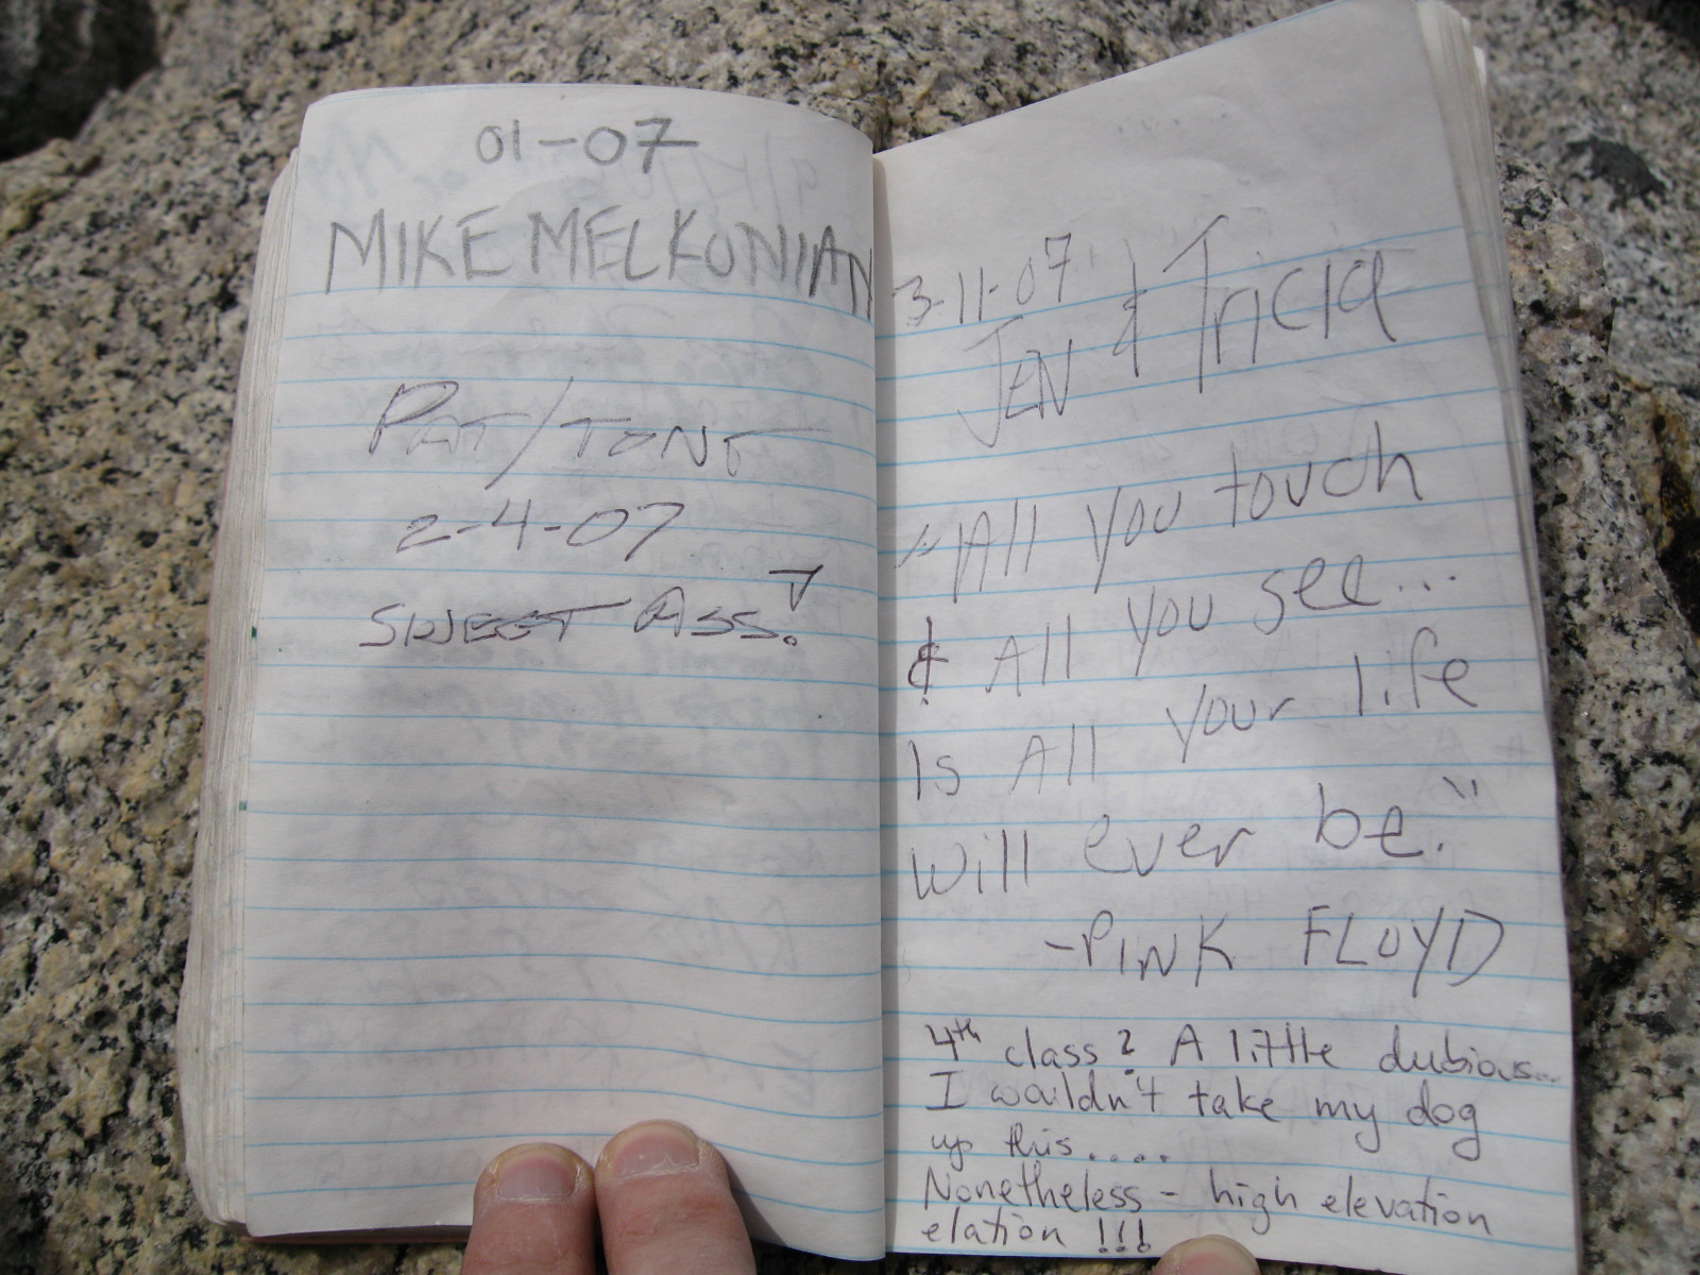 01-07
MIKE MELKONIAN
PAT/TONY
2-4-07
SWEET ASS!
3-11-07
JEN & Tricia
"All you touch
& All you see...
Is All your life
will ever be."
-PINK FLOYD
4th class? A little dubious...
I wouldn't take my dog
up this....
Nonetheless - high elevation
elation!!!